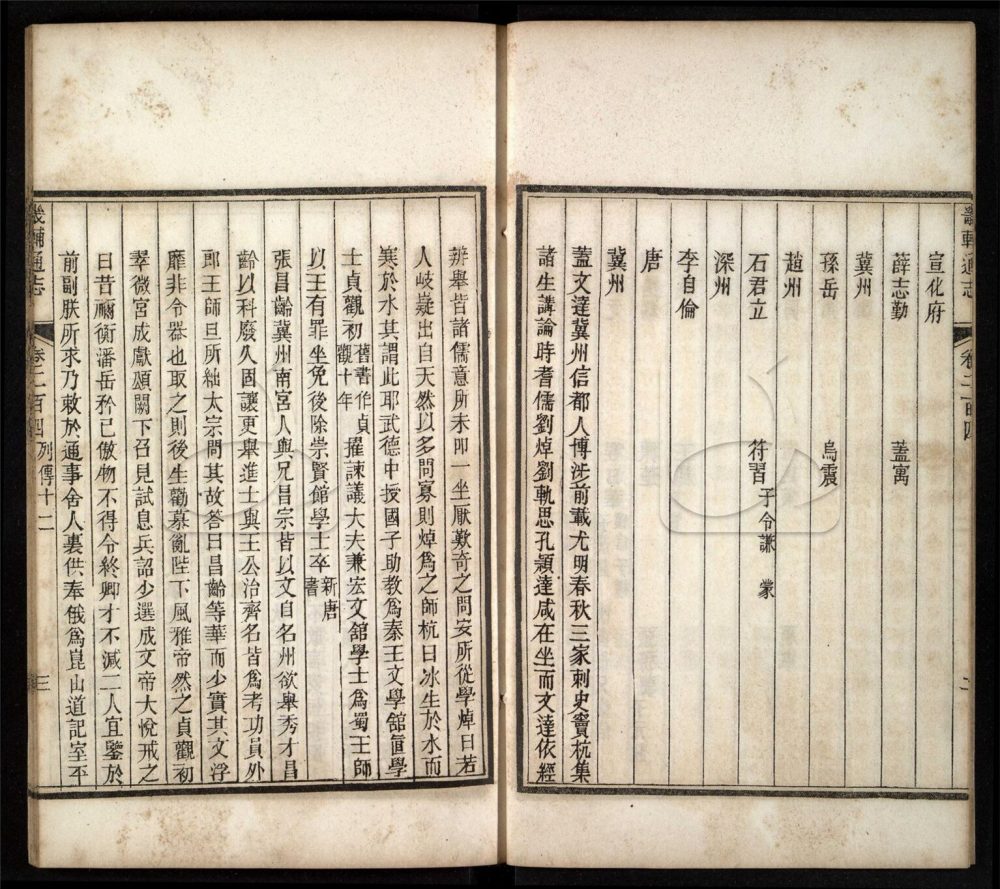 畿輔通志 卷二百四
宣化府
薛志勤 蓋寓
冀州
孫岳 烏震
趙州
石君立 符習 子令謙 蒙
深州
李自倫
唐
冀州
蓋文達冀州信都人博涉前載尤明春秋三家刺史竇抗集
諸生講論時耆儒劉焯劉軌思孔穎達咸在坐而文達依經
辨舉皆諸儒意所未叩一坐厭歎奇之問安所從學焯曰若
人岐嶷出自天然以多問寡則焯爲之師杭曰冰生於水而
寒於水其謂此耶武德中授國子助教爲秦王文學館直學
士貞觀初 舊書作貞觀十年 擢諫議大夫兼宏文館學士爲蜀王師
以王有罪坐免後除崇賢館學士卒 新唐書
張昌齡冀州南宮人與兄昌宗皆以文自名州欲舉秀才昌
齡以科廢久固讓更舉進士與王公治齊名皆爲考功員外
郎王師旦所絀太宗問其故答曰昌齡等華而少實其文浮
靡非令器也取之則後生勸慕亂陛下風雅帝然之貞觀初
翠微宮成獻頌闕下召見試息兵詔少選成文帝大悅戒之
曰昔禰衡潘岳矜已傲物不得令終卿才不減二人宜鑒於
前副朕所求乃敕於通事舍人裏供奉俄爲崑山道記室平
畿輔通志 卷二百四 列傳十二 三